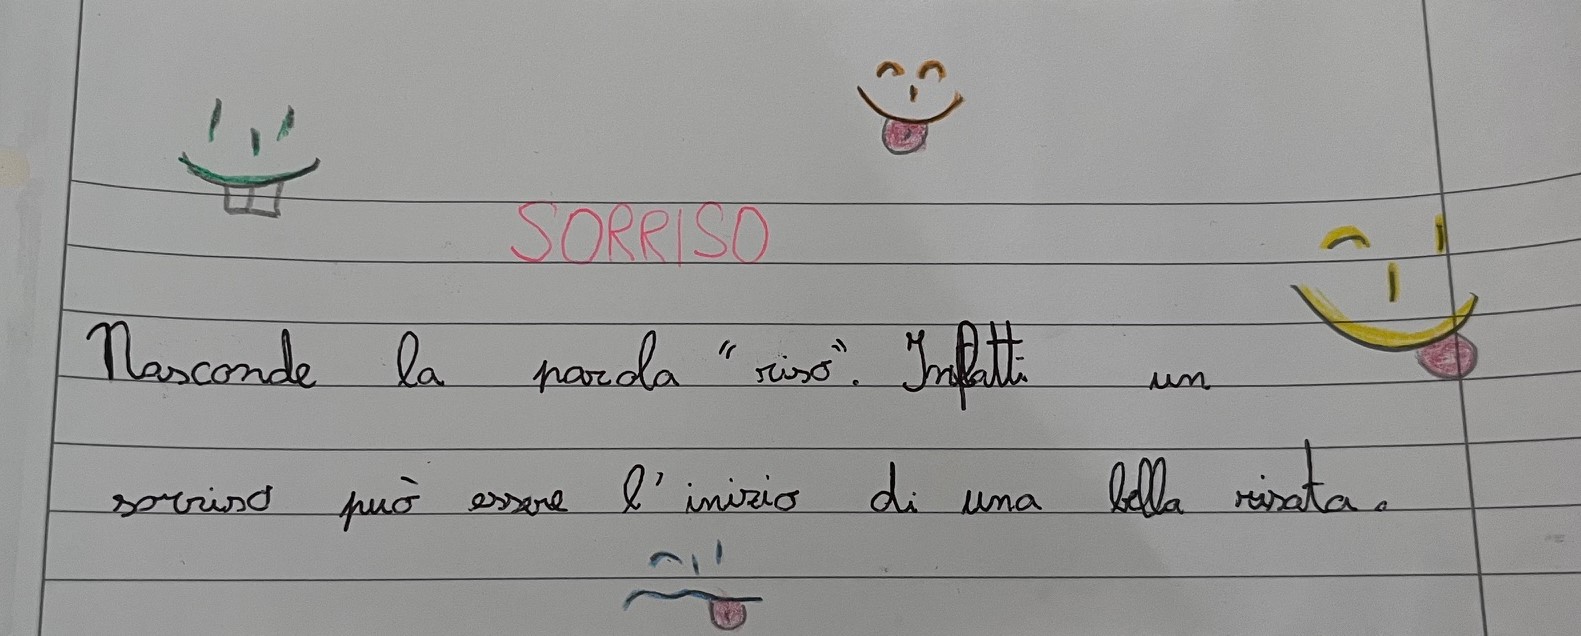 SORRISO
Nasconde la parola "riso". Infatti un
sorriso può essere l'inizio di una bella risata.